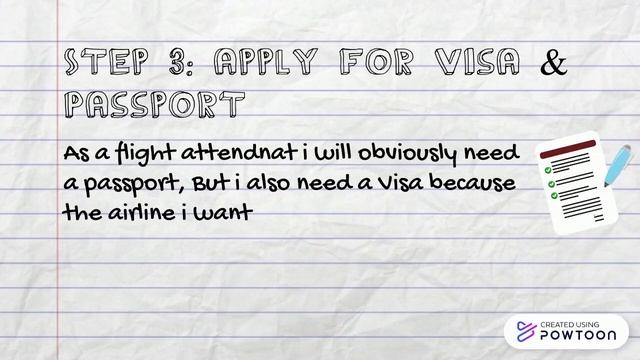 STEP 3: APPLY FOR VISA &
PASSPORT
As a flight attendnat i will obviously need
a passport, But i also need a Visa because
the airline i want
CREATED USING
POWTOON